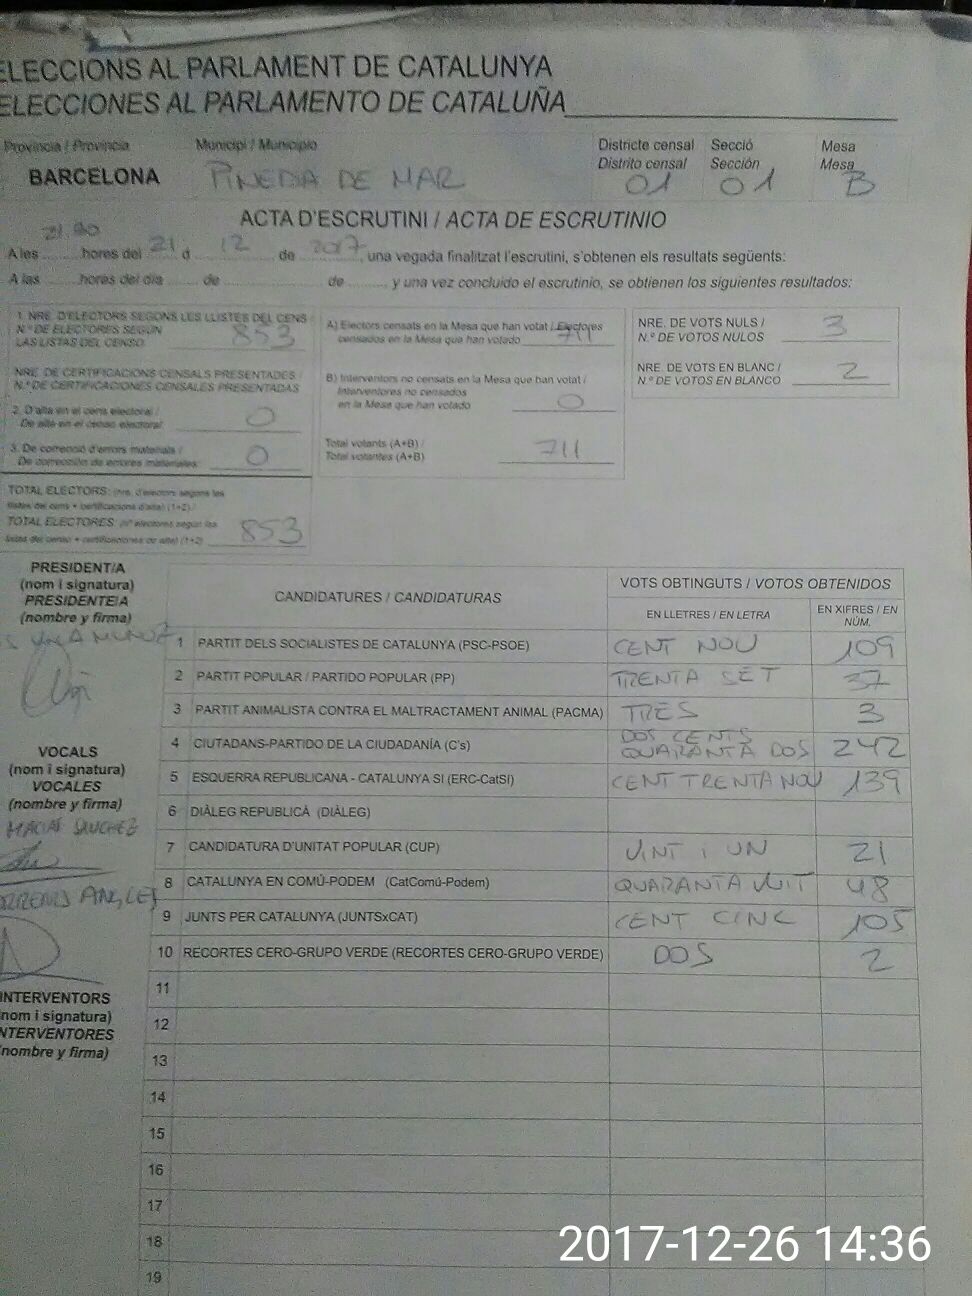 ELECCIONS AL PARLAMENT DE CATALUNYA
ELECCIONES AL PARLAMENTO DE CATALUÑA
Provincia / Provincia Municipi / Municipio Districte censal Secció Mesa
Distrito censal Sección Mesa
BARCELONA PINEDA DE MAR 01 01 B
ACTA D'ESCRUTINI / ACTA DE ESCRUTINIO
A les hores del 21 d 12 de 2017, una vegada finalitzat l'escrutini, s'obtenen els resultats següents:
A las hores del dia de de y una vez concluido el escrutinio, se obtienen los siguientes resultados:
1. NRE. D'ELECTORS SEGONS LES LLISTES DEL CENS
N.º DE ELECTORES SEGÚN
LAS LISTAS DEL CENSO 853
NRE. DE CERTIFICACIONS CENSALS PRESENTADES /
N.º DE CERTIFICACIONES CENSALES PRESENTADAS
2. D'alta en el cens electoral /
De alta en el censo electoral 0
3. De correcció d'errors materials /
De corrección de errores materiales 0
TOTAL ELECTORS: (nre. d'electors segons les
llistes del cens + certificacions d'alta) (1+2) /
TOTAL ELECTORES: (nº electores según las
listas del censo + certificaciones de alta) (1+2) 853
A) Electors censats en la Mesa que han votat / Electores
censados en la Mesa que han votado 711
B) Interventors no censats en la Mesa que han votat /
Interventores no censados
en la Mesa que han votado 0
Total votants (A+B) /
Total votantes (A+B) 711
NRE. DE VOTS NULS /
N.º DE VOTOS NULOS 3
NRE. DE VOTS EN BLANC /
N.º DE VOTOS EN BLANCO 2
PRESIDENT/A
(nom i signatura)
PRESIDENTE/A
(nombre y firma)
VOCALS
(nom i signatura)
VOCALES
(nombre y firma)
SANCHEZ
INTERVENTORS
(nom i signatura)
INTERVENTORES
(nombre y firma)
CANDIDATURES / CANDIDATURAS VOTS OBTINGUTS / VOTOS OBTENIDOS
EN LLETRES / EN LETRA EN XIFRES / EN NÚM.
1 PARTIT DELS SOCIALISTES DE CATALUNYA (PSC-PSOE) CENT NOU 109
2 PARTIT POPULAR / PARTIDO POPULAR (PP) TRENTA SET 37
3 PARTIT ANIMALISTA CONTRA EL MALTRACTAMENT ANIMAL (PACMA) TRES 3
4 CIUTADANS-PARTIDO DE LA CIUDADANÍA (C's) DOS CENTS QUARANTA DOS 242
5 ESQUERRA REPUBLICANA - CATALUNYA SI (ERC-CatSI) CENT TRENTA NOU 139
6 DIÀLEG REPUBLICÀ (DIÀLEG)
7 CANDIDATURA D'UNITAT POPULAR (CUP) VINT I UN 21
8 CATALUNYA EN COMÚ-PODEM (CatComú-Podem) QUARANTA VUIT 48
9 JUNTS PER CATALUNYA (JUNTSxCAT) CENT CINC 105
10 RECORTES CERO-GRUPO VERDE (RECORTES CERO-GRUPO VERDE) DOS 2
11
12
13
14
15
16
17
18
19
2017-12-26 14:36